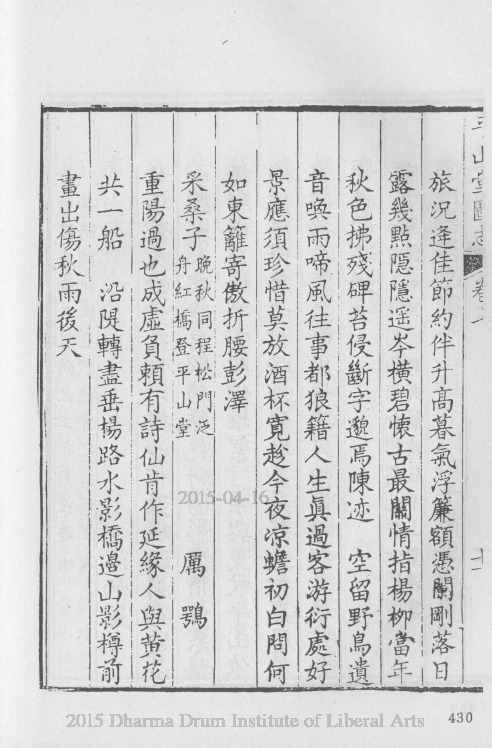 平山堂圖志 卷
十一
旅況逢佳節約伴升髙暮氣浮簾額憑闌剛落日
露幾點隠隱遥岑横碧懷古最關情指楊柳當年
秋色拂殘碑苔侵斷字邈焉陳迹　空留野鳥遺
音喚雨啼風往事都狼籍人生眞過客游衍處好
景應須珍惜莫放酒杯寛趁今夜凉蟾初白問何
如東籬寄傲折腰彭澤
采桑子 晩秋同程松門泛舟紅橋登平山堂　厲鶚
重陽過也成虚負頼有詩仙肯作延縁人與黄花
共一船　沿隄轉盡垂楊路水影橋邊山影樽前
畫出傷秋雨後天
2015-04-16
2015 Dharma Drum Institute of Liberal Arts
430